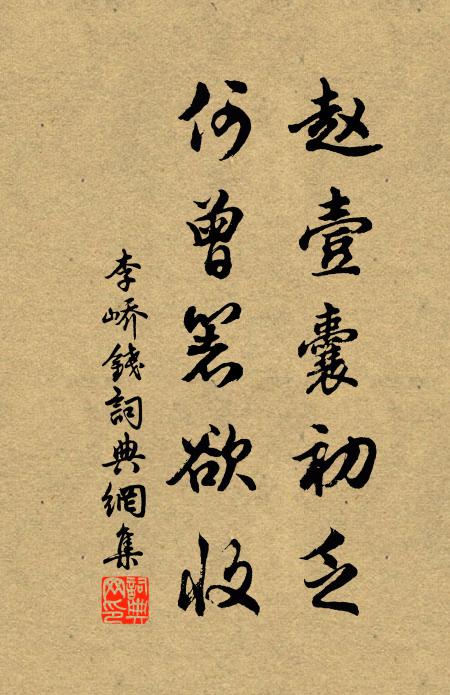 赵壹囊初乏
何曾箸欲收
李峤錢詞典網集
詞典网印